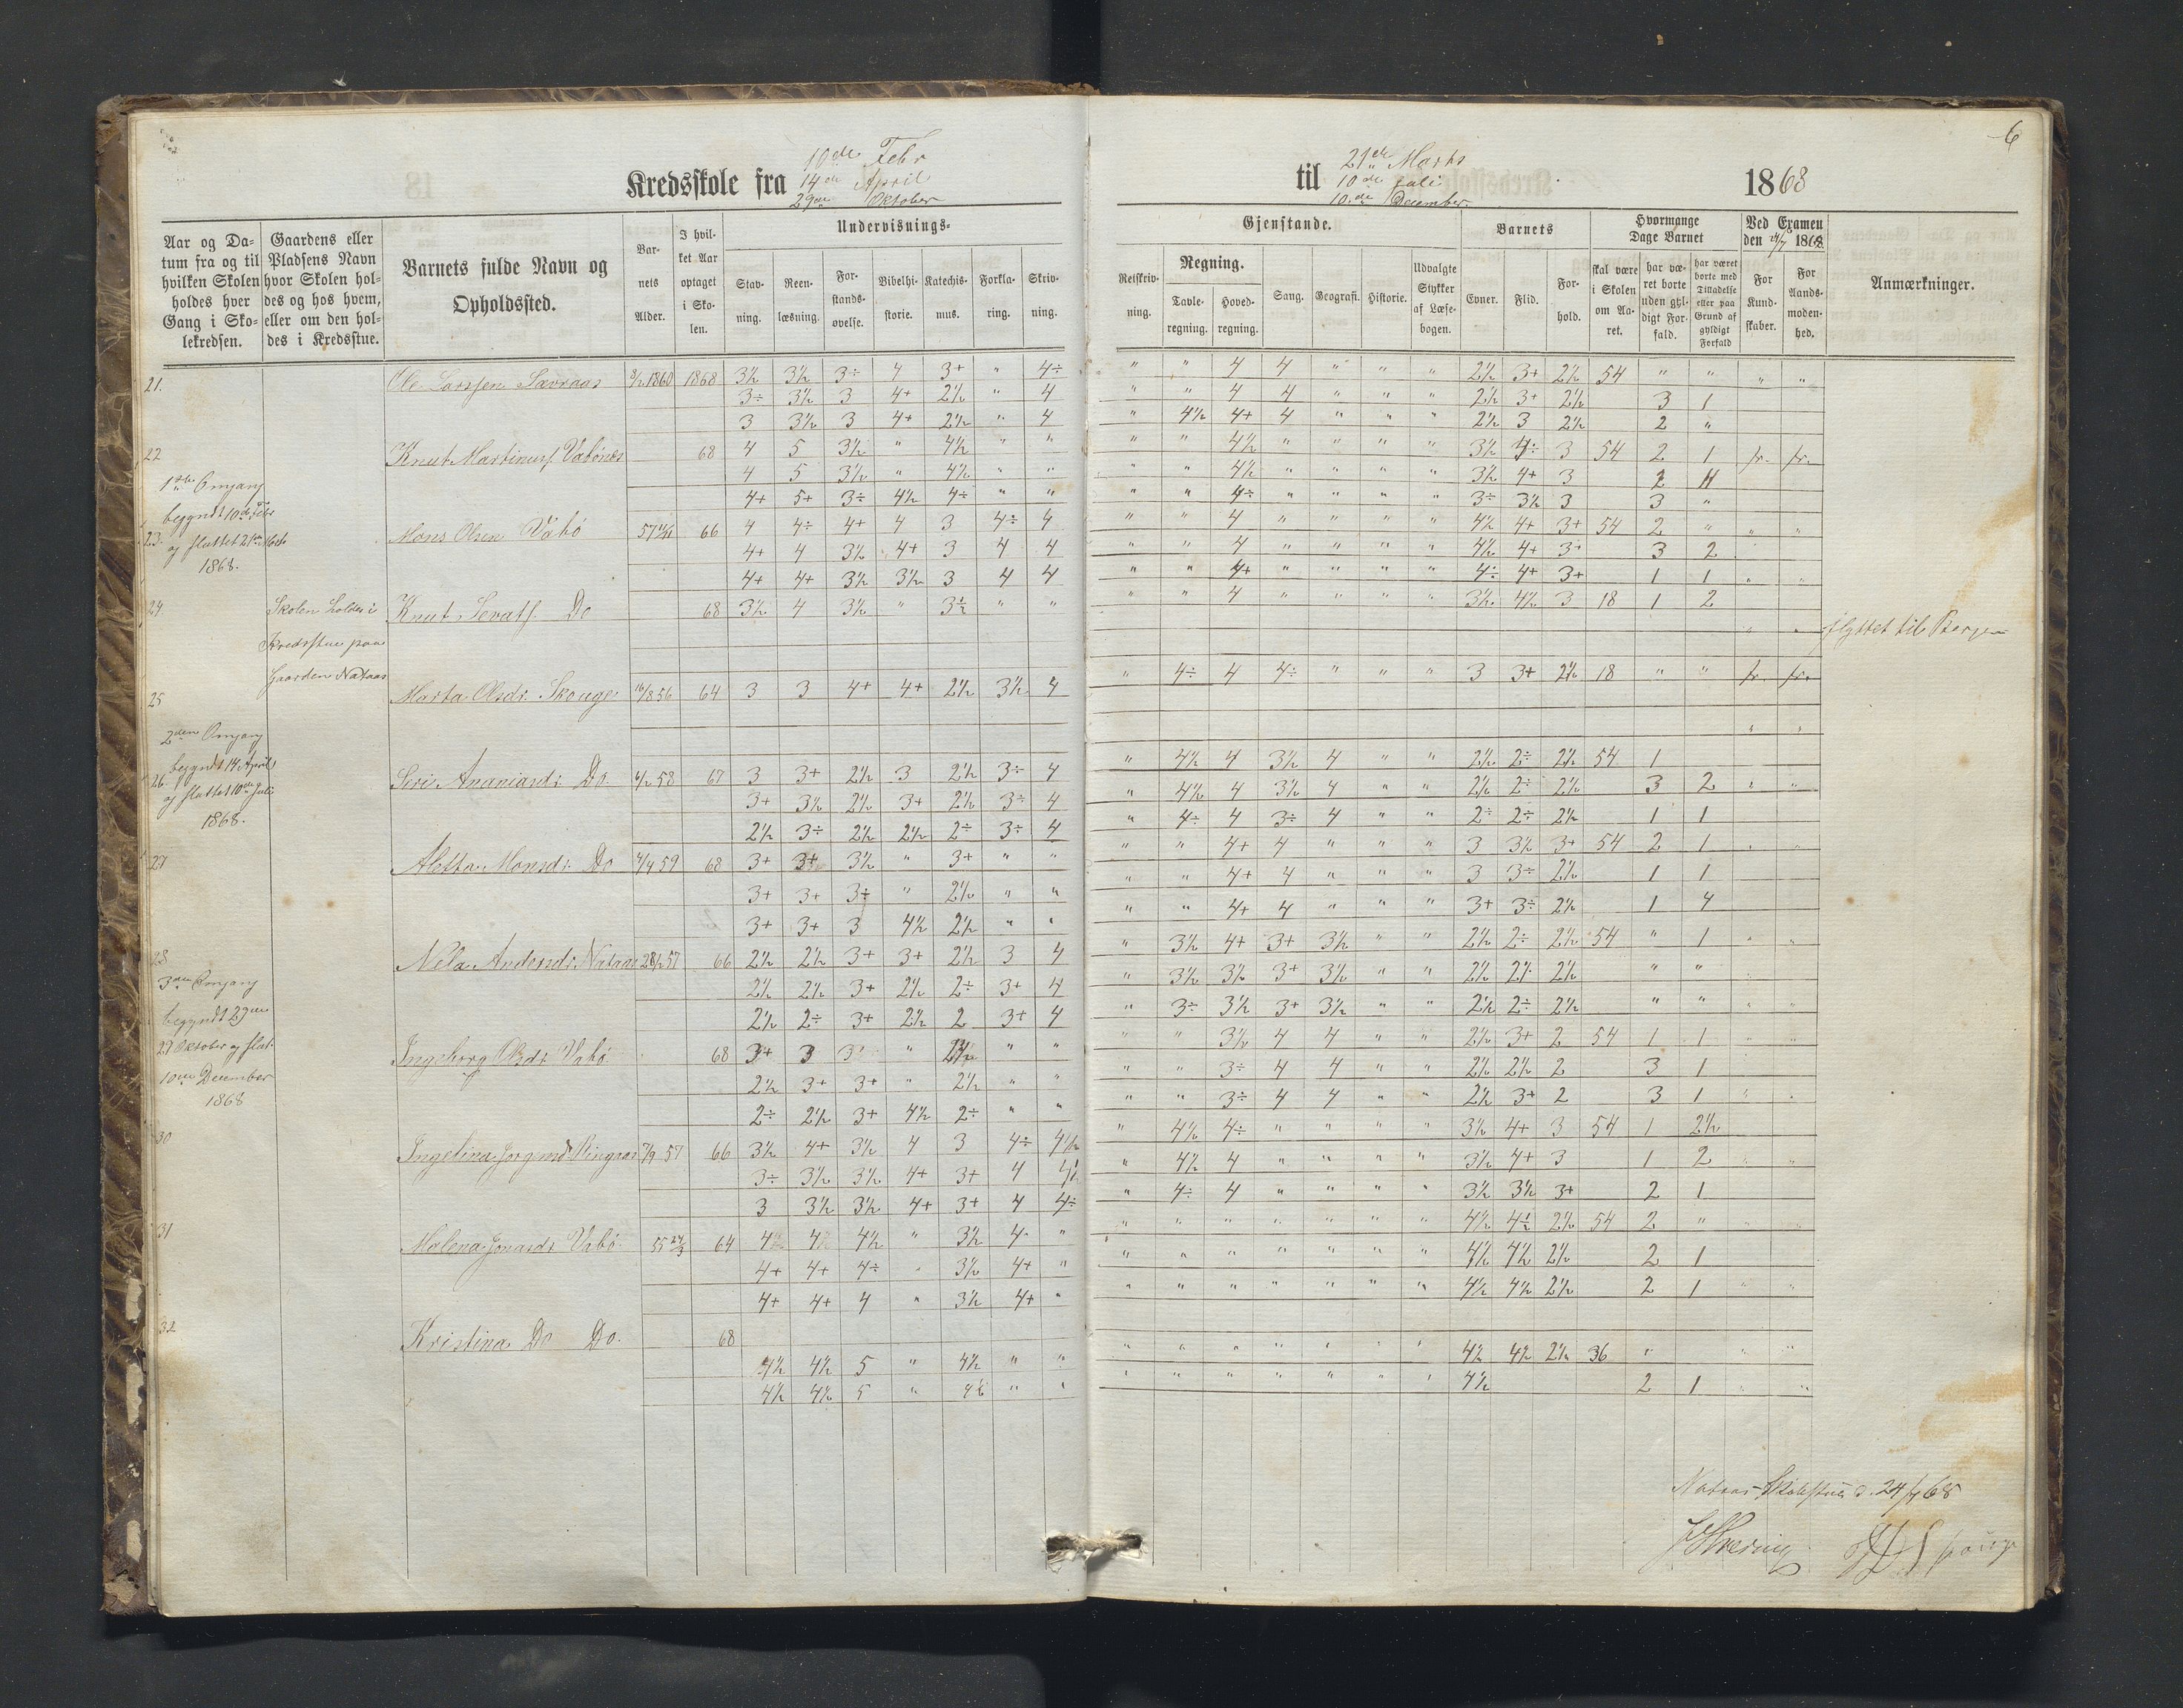 6
10de Febr
Kredsskole fra 14de April
29de Oktober
21de Marts
til 10de Juli
10de December
1868
Aar og Datum fra og til hvilken Skolen holdes hver Gang i Skolekredsen.
Gaardens eller Pladsens Navn hvor Skolen holdes og hos hvem, eller om den holdes i Kredsstue.
Barnets fulde Navn og Opholdssted.
Barnets Alder.
I hvilket Aar optaget i Skolen.
Undervisnings-
Stavning.
Reenlæsning.
Forstandsøvelse.
Bibelhistorie.
Katechismus.
Forklaring.
Skrivning.
Gjenstande.
Retskrivning.
Regning.
Tavleregning.
Hovedregning.
Sang.
Geografi.
Historie.
Udvalgte Stykker af Læsebogen.
Barnets
Evner.
Flid.
Forhold.
Hvormange Dage Barnet
skal være i Skolen om Aaret.
har været borte uden gyldigt Forfald.
har været borte med Tilladelse eller paa Grund af gyldigt Forfald
Ved Examen den 24/7 1868.
For Kundskaber.
For Aandsmodenhed.
Anmærkninger.
21. Ole Larssen Sævraas 1860 1868 3½ 3½ 3÷ 4 3+ " 4÷ " " 4 4 " " " 2½ 3+ 2½ 54 " " " "
3÷ 3½ 3 4+ 2½ " 4 " " 4 4 " " " 2½ 3+ 2½ 3 1
3 3½ 3 4+ 2½ " 4 " 4½ 4+ 4 " " " 2½ 3 2½ 2 "
22 Knut Martinuss. Vabönes 68 4 5 3½ " 4½ " " " " 4½ " " " " 3½ 4÷ 3 54 2 1 fr. fr.
4 5 3½ " 4½ " " " " 4½ " " " " 3½ 4+ 3
4+ 5+ 3÷ 4½ 4÷ " " " " 4÷ " " " " 3÷ 3½ 3 3 "
1ste Omgang
begyndt 10de Febr
og sluttet 21de Marts
1868.
23. Mons Olsen Vabö 57 66 4 4÷ 4+ 4 3 4÷ 4 " " 4 " " " " 4½ 4+ 3+ 54 2 " " "
4+ 4 3½ 4+ 3 4 4 " " 4 " " " " 4½ 4+ 3+ 3 2
4+ 4+ 3½ 3½ 3 4 4 " " 4+ " " " " 4÷ 4+ 3+ 1 1 " "
24. Knut Sevats. Do 68 3½ 4 3½ " 3½ " " " " 4 " " " " 3½ 4½ 3 18 1 2
flyttet til Bergen
Skolen holdes i
Kredsstue paa
Gaarden Nataas
25 Marta Olsdr. Skouge 16/8 56 64 3 3 4+ 4+ 2½ 3½ 4 " 4÷ 4 4÷ " " " 3 3+ 2½ 18 " " fr. fr.
2den Omgang
begyndt 14 April
og sluttet 10de Juli
1868.
26 Siri Ananiasdr. Do. 58 67 3 3+ 2½ 3 2½ 3÷ 4 " 4½ 4 3½ 4 " " 2½ 2÷ 2½ 54 1
3+ 3½ 2½ 3+ 2½ 3÷ 4 " 4½ 4 3½ 4 " " 2½ 2÷ 2½ 3 2 " "
2½ 3÷ 2½ 2½ 2÷ 3÷ 4 " 4÷ 4 3÷ 4 " " 2÷ 2÷ 2½ 1 1
27 Aletta Monsdr. Do 59 68 3+ 3+ 3½ " 3+ " " " " 4+ 4 " " " 3 3½ 3+ 54 2 1 " "
3+ 3+ 3÷ " 2½ " " " " 4+ 4 " " " 3 3÷ 2½ 1 1
3+ 3+ 3 4½ 2½ " " " " 4+ 4 " " " 3+ 3÷ 2½ 1 4
28 Nela Andersdr. Nataas 57 66 2½ 2½ 3+ 3+ 2½ 3 4 " 3½ 4+ 3+ 3½ " " 2½ 2÷ 2½ 54 " 1 " "
2½ 2½ 3+ 2½ 2÷ 3+ 4 " 3½ 3½ 3+ 3½ " " 2½ 2½ 2½ " "
2½ 2÷ 3+ 2½ 2 3+ 4 " 3÷ 3½ 3+ 3½ " " 2½ 2÷ 2½ " " " "
3die Omgang
begyndt 29de
Oktober og slut.
10de December
1868
29 Ingeborg Olsdr. Vabö 68 3+ 3 3 " 2½ " " " " 3½ 4 4 " " 2½ 3+ 2 54 1 1 " "
2½ 3+ 3+ " 2½ " " " " 3÷ 4 4 " " 2½ 2½ 2 3 1
2÷ 2½ 3+ 4½ 2÷ " " " " 3÷ 4 4 " " 2½ 3+ 2 3 1 " "
30 Ingelina 57 66 3½ 4+ 3½ 4 3 4÷ 4½ " 4½ 4÷ " " " " 3½ 4+ 3 54 1 2½
3÷ 3½ 3½ 4+ 3+ 4 4½ " 4½ 4 " " " " 3½ 4+ 3 1 2 " "
3 3½ 3½ 4+ 3+ 4 4÷ " 4÷ 4 " " " " 3½ 3½ 3+ 2 1
31 Malena Jonasdr. Vabö 55 64 4½ 4½ 4½ " 3½ 4 " " " " " " " " 4½ 4½ 2½ 54 2 " " "
4+ 4+ 4÷ " 3½ 4+ " " " " " " " " 4½ 4½ 2½ 2 1
4+ 4+ 4 " 3½ 4+ " " " " " " " " 4½ 4½ 2½ 2 1 " "
32 Kristina Do Do. 68
4½ 4½ 5 " 4½ " " " " " " " " " 4½ 4½ 2½ 36 " " "
4½ 4½ 5 " 4½ " " " " " " " " " 4½ 2 1 " "
Nataas Skolestue d. 24/7 68